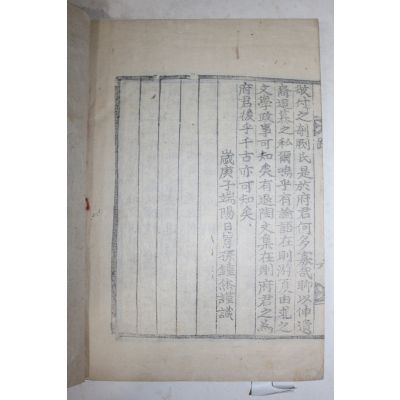 敬付之剞劂氏是於府君何多寡哉聊以伸追
齋追慕之私爾嗚乎有論語在則游夏由求之
文學政事可知矣有退陶文集在則府君之爲
府君後乎千古亦可知矣
歲庚子端陽日胄孫鍾 謹識